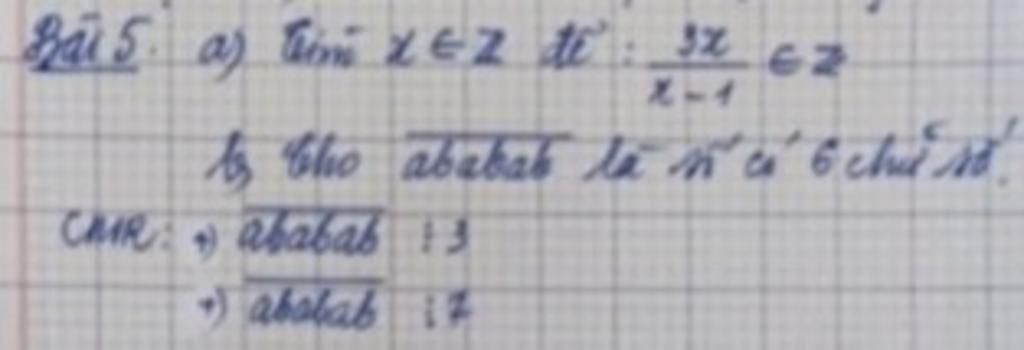 Bài 5. a) Tìm x ∈ Z để : 3x/(x - 1) ∈ Z
b, Cho \overline{ababab} là số có 6 chữ số.
CMR: +) \overline{ababab} ⋮ 3
+) \overline{ababab} ⋮ 7